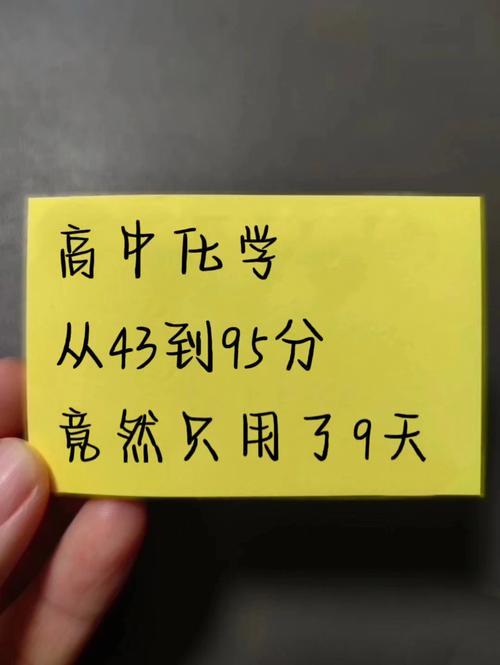 高中化学
从43到95分
竟然只用了9天